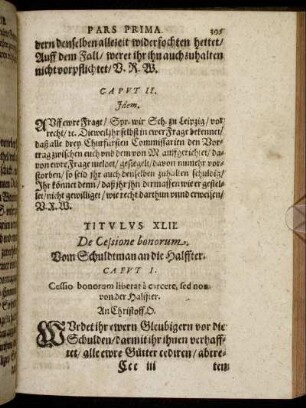 PARS PRIMA. 395
dern denselben alleteit widerfochten hettet/
Auff dem Fall/ weret ihr ihn auch zuhalten
nicht vorpflichtet/ V. R. W.
CAPVT II.
Idem.
AVff ewre Frage/ Spr. wir Sch. zu Leipzig/ vor
recht/ ꝛc. Dieweil ihr selbst in ewer Frage bekennet/
daß alle drey Churfürsten Commissarien den Vor-
trag zwischen euch vnd dem von M. auffgerichtet/ da-
von ewre Frage meldet/ gesiegelt/ davon nunmehr vor-
storben/ so seid ihr auch denselben zuhalten schuldig/
Ihr könnet denn/ daß ihr ihn dermassen wie er gestel-
let/ nicht gewilliget/ wie recht darthun vnnd erweisen/
V. R. W.
TITVLVS XLII.
De Cessione bonorum.
Vom Schuldtman an die Halffter.
CAPVT I.
Cessio bonorum liberat à carcere, sed non
von der Halffter.
An Christoff. O.
WErdet ihr ewern Gleubigern vor die
Schulden/ darmit ihr ihnen verhaff-
tet/ alle ewre Gütter cediren/ abtre-
Ccc iii ten